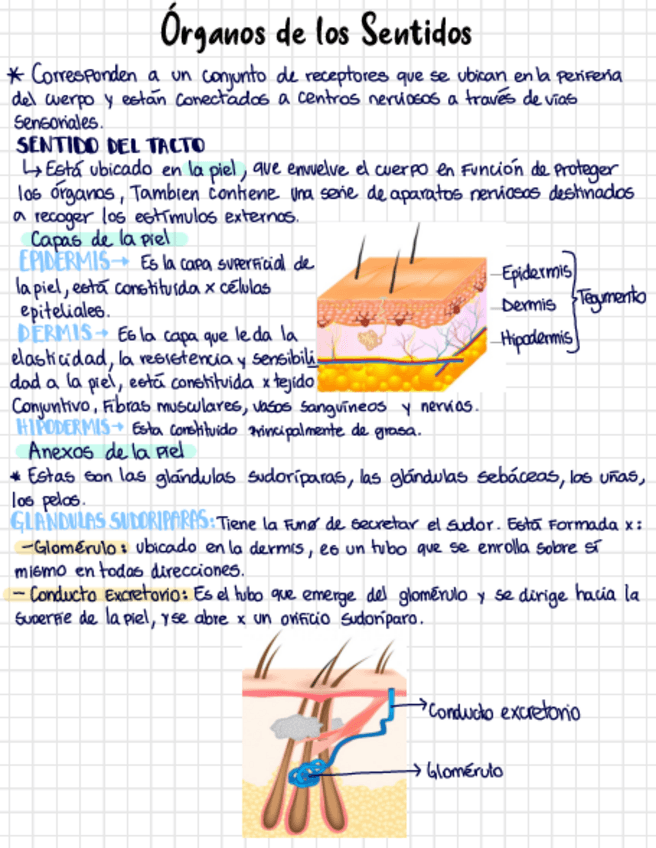 Órganos de los Sentidos
* Corresponden a un conjunto de receptores que se ubican en la periferia
del cuerpo y están conectados a centros nerviosos a través de vías
sensoriales.
SENTIDO DEL TACTO
↳ Está ubicado en la piel, que envuelve el cuerpo en función de proteger
los órganos, Tambien contiene una serie de aparatos nerviosos destinados
a recoger los estímulos externos.
Capas de la piel
EPIDERMIS → Es la capa superficial de
la piel, está constituida x células
epiteliales.
DERMIS → Es la capa que le da la
elasticidad, la resistencia y sensibili
dad a la piel, está constituida x tejido
Conjuntivo, Fibras musculares, vasos sanguíneos y nervios.
HIPODERMIS → Esta constituido principalmente de grasa.
Epidermis
Dermis
Hipodermis
Tegumento
Anexos de la piel
* Estas son las glándulas sudoríparas, las glándulas sebáceas, las uñas,
los pelos.
GLANDULAS SUDORIPARAS: Tiene la Funø de secretar el sudor. Está Formada x:
- Glomérulo: ubicado en la dermis, es un tubo que se enrolla sobre sí
mismo en todas direcciones.
- Conducto Excretorio: Es el tubo que emerge del glomérulo y se dirige hacia la
superfie de la piel, y se abre x un orificio sudoríparo.
Conducto excretorio
Glomérulo